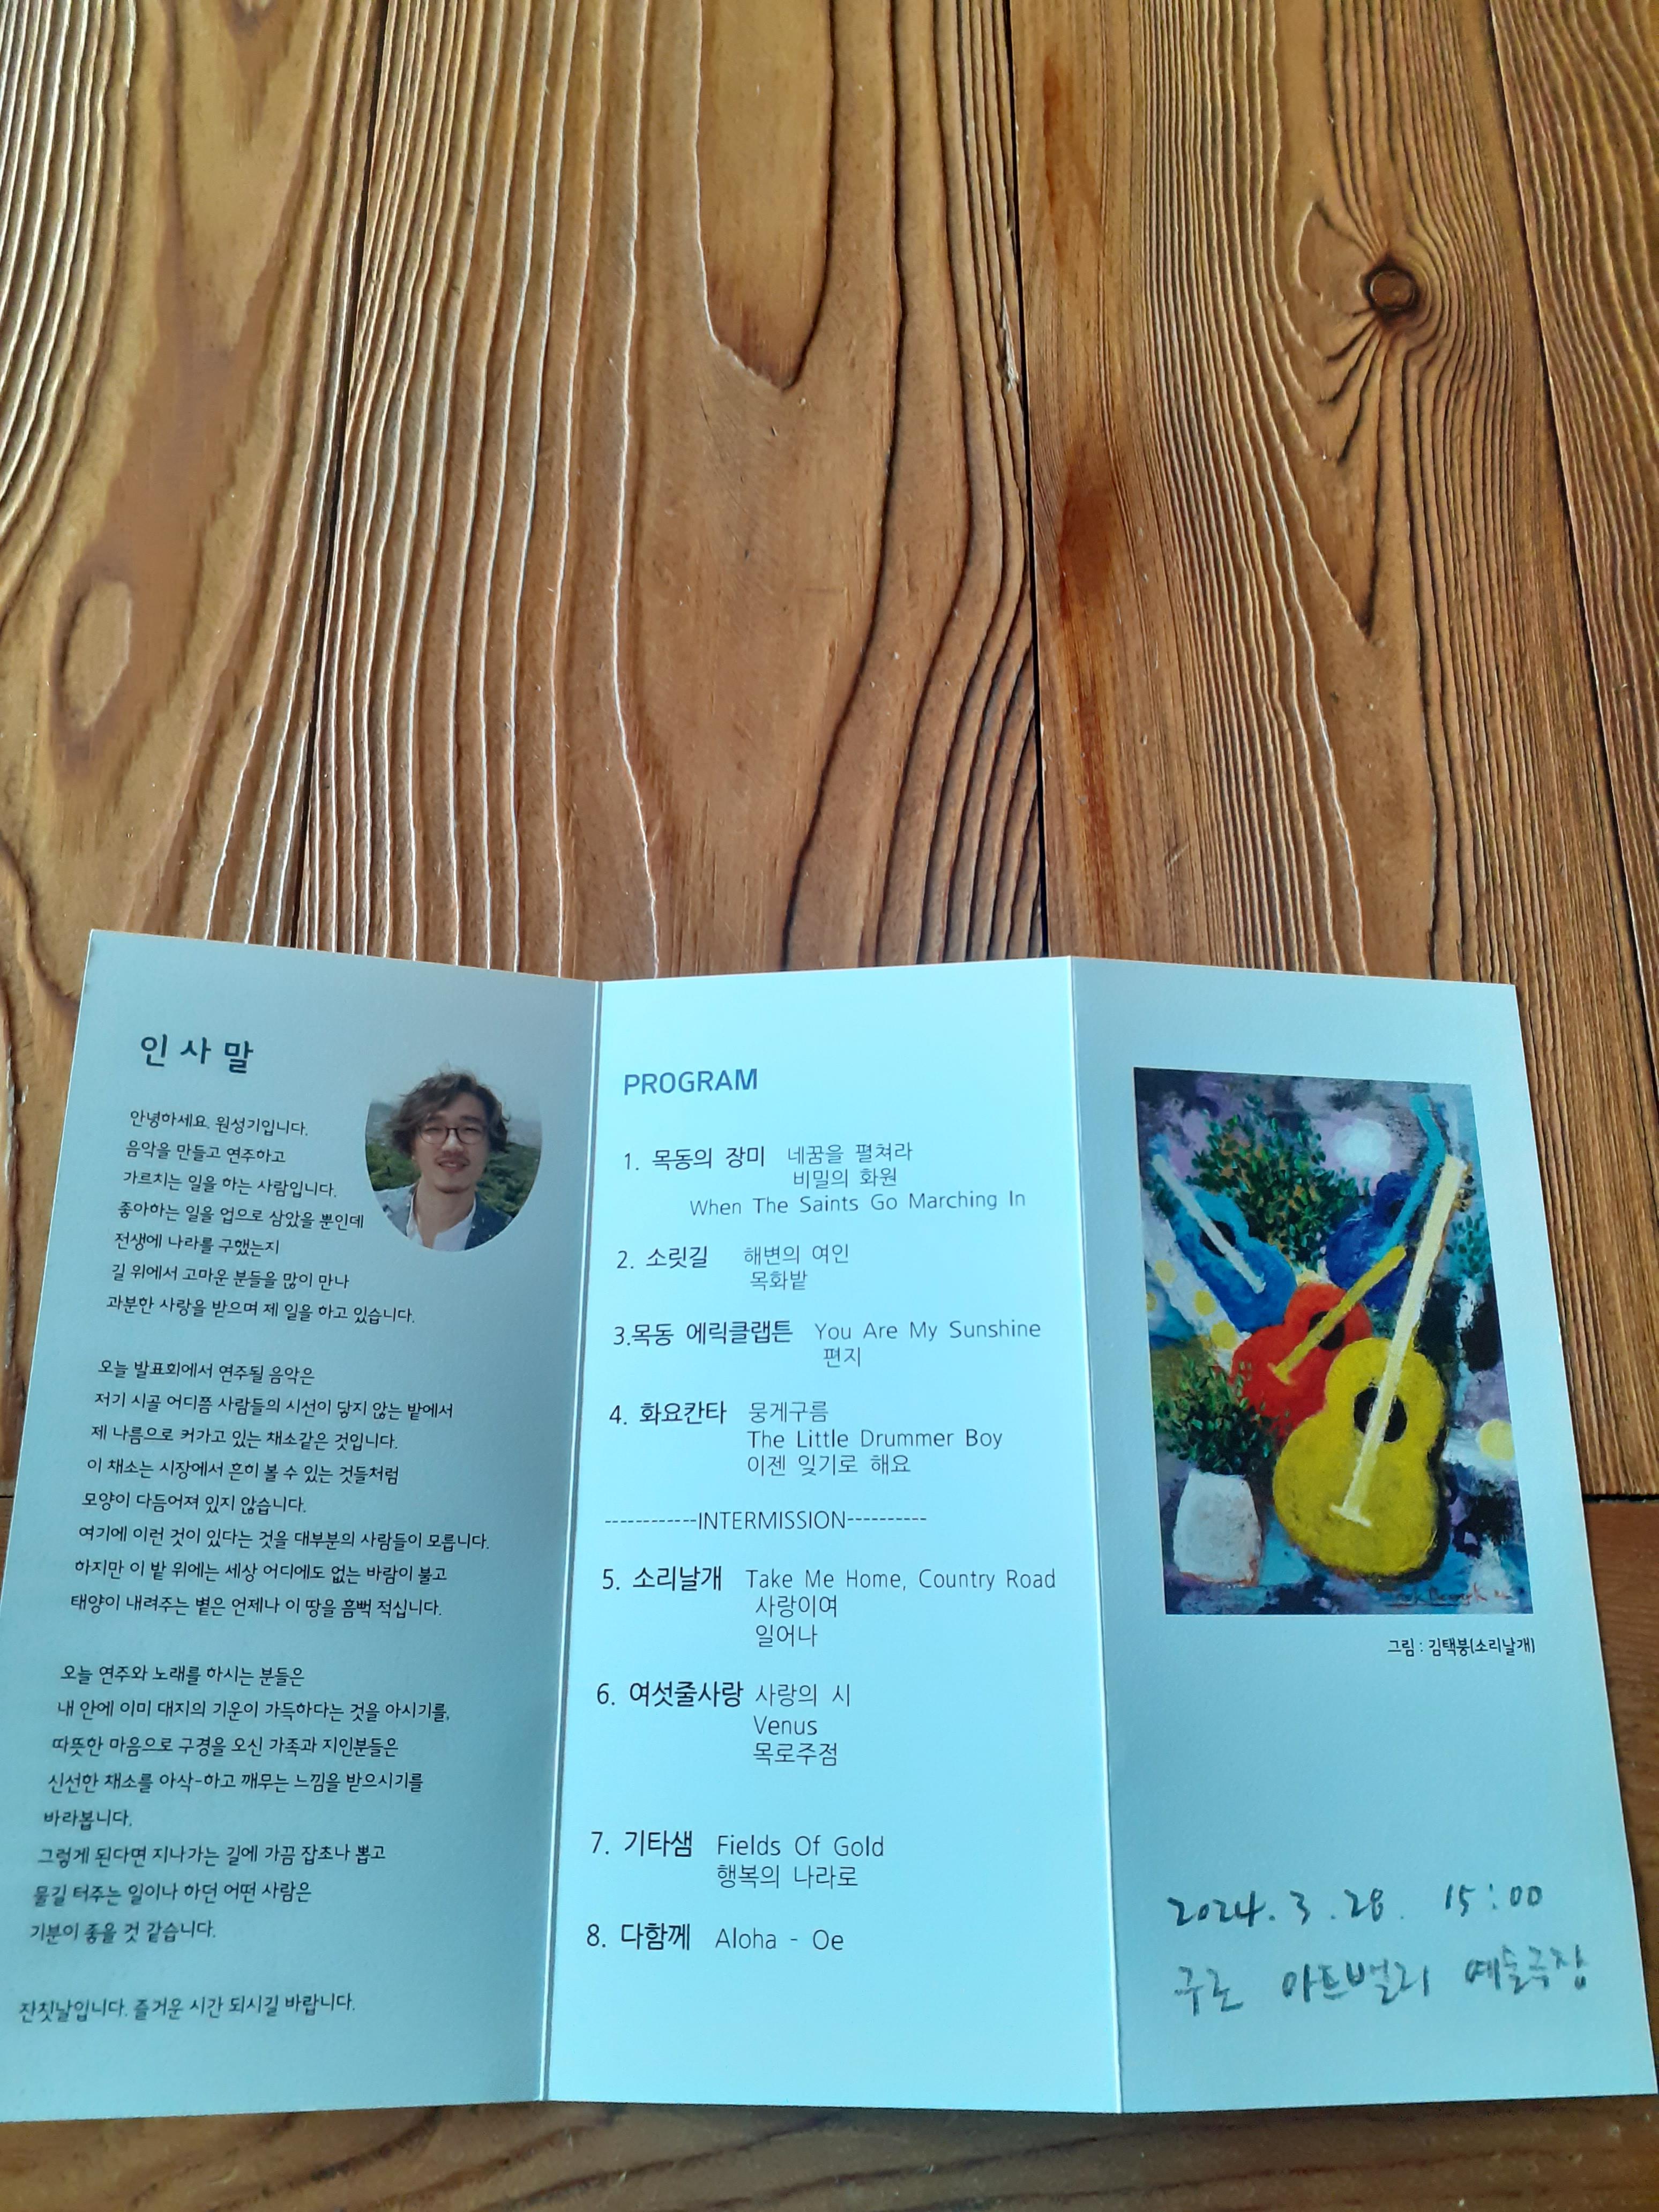 인사말
안녕하세요. 원성기입니다.
음악을 만들고 연주하고
가르치는 일을 하는 사람입니다.
좋아하는 일을 업으로 삼았을 뿐인데
전생에 나라를 구했는지
길 위에서 고마운 분들을 많이 만나
과분한 사랑을 받으며 제 일을 하고 있습니다.
오늘 발표회에서 연주될 음악은
저기 시골 어디쯤 사람들의 시선이 닿지 않는 밭에서
제 나름으로 커가고 있는 채소같은 것입니다.
이 채소는 시장에서 흔히 볼 수 있는 것들처럼
모양이 다듬어져 있지 않습니다.
여기에 이런 것이 있다는 것을 대부분의 사람들이 모릅니다.
하지만 이 밭 위에는 세상 어디에도 없는 바람이 불고
태양이 내려주는 볕은 언제나 이 땅을 흠뻑 적십니다.
오늘 연주와 노래를 하시는 분들은
내 안에 이미 대지의 기운이 가득하다는 것을 아시기를,
따뜻한 마음으로 구경을 오신 가족과 지인분들은
신선한 채소를 아삭-하고 깨무는 느낌을 받으시기를
바라봅니다.
그렇게 된다면 지나가는 길에 가끔 잡초나 뽑고
물길 터주는 일이나 하던 어떤 사람은
기분이 좋을 것 같습니다.
잔칫날입니다. 즐거운 시간 되시길 바랍니다.
PROGRAM
1. 목동의 장미 네꿈을 펼쳐라
비밀의 화원
When The Saints Go Marching In
2. 소릿길 해변의 여인
목화밭
3.목동 에릭클랩튼 You Are My Sunshine
편지
4. 화요칸타 뭉게구름
The Little Drummer Boy
이젠 잊기로 해요
------------INTERMISSION----------
5. 소리날개 Take Me Home, Country Road
사랑이여
일어나
6. 여섯줄사랑 사랑의 시
Venus
목로주점
7. 기타샘 Fields Of Gold
행복의 나라로
8. 다함께 Aloha - Oe
그림 : 김택붕(소리날개)
2024. 3. 28. 15:00
구로 아트밸리 예술극장